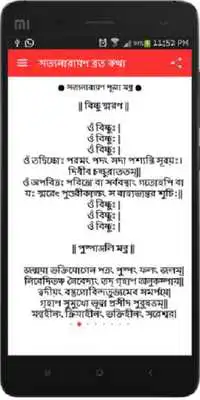 mi
11:52 PM
সত্যনারায়ণ ব্রত কথা
● সত্যনারায়ণ পূজা মন্ত্র ●
|| বিষ্ণু স্মরণ ||
ওঁ বিষ্ণুঃ |
ওঁ বিষ্ণুঃ |
ওঁ বিষ্ণুঃ |
ওঁ তদ্বিষ্ণোঃ পরমং পদং সদা পশ্যন্তি সূরয়ঃ |
দিবীব চক্ষুরাততম||
ওঁ অপবিত্রঃ পবিত্রো বা সর্বাবস্থাং গতোহপি বা
যঃ স্মরেৎ পুণ্ডরীকাক্ষং স বাহ্যাভ্যন্তর শুচিঃ||
ওঁ বিষ্ণুঃ |
ওঁ বিষ্ণুঃ |
ওঁ বিষ্ণুঃ |
|| পুষ্পাঞ্জলি মন্ত্র ||
ভক্তিযোগেন পত্রং পুষ্পং ফলং জলম|
নিবেদিতঞ্চ নৈবেদ্যং তদ্ গৃহাণ অনুকম্পায়||
ত্বদীয়ং বস্তুগোবিন্দতুভ্যমেব সমর্পয়ে|
গৃহাণ সুমুখো ভূত্বা প্রসীদ পুরুষত্তম||
মন্ত্রহীনং ক্রিয়াহীনং ভক্তিহীনং